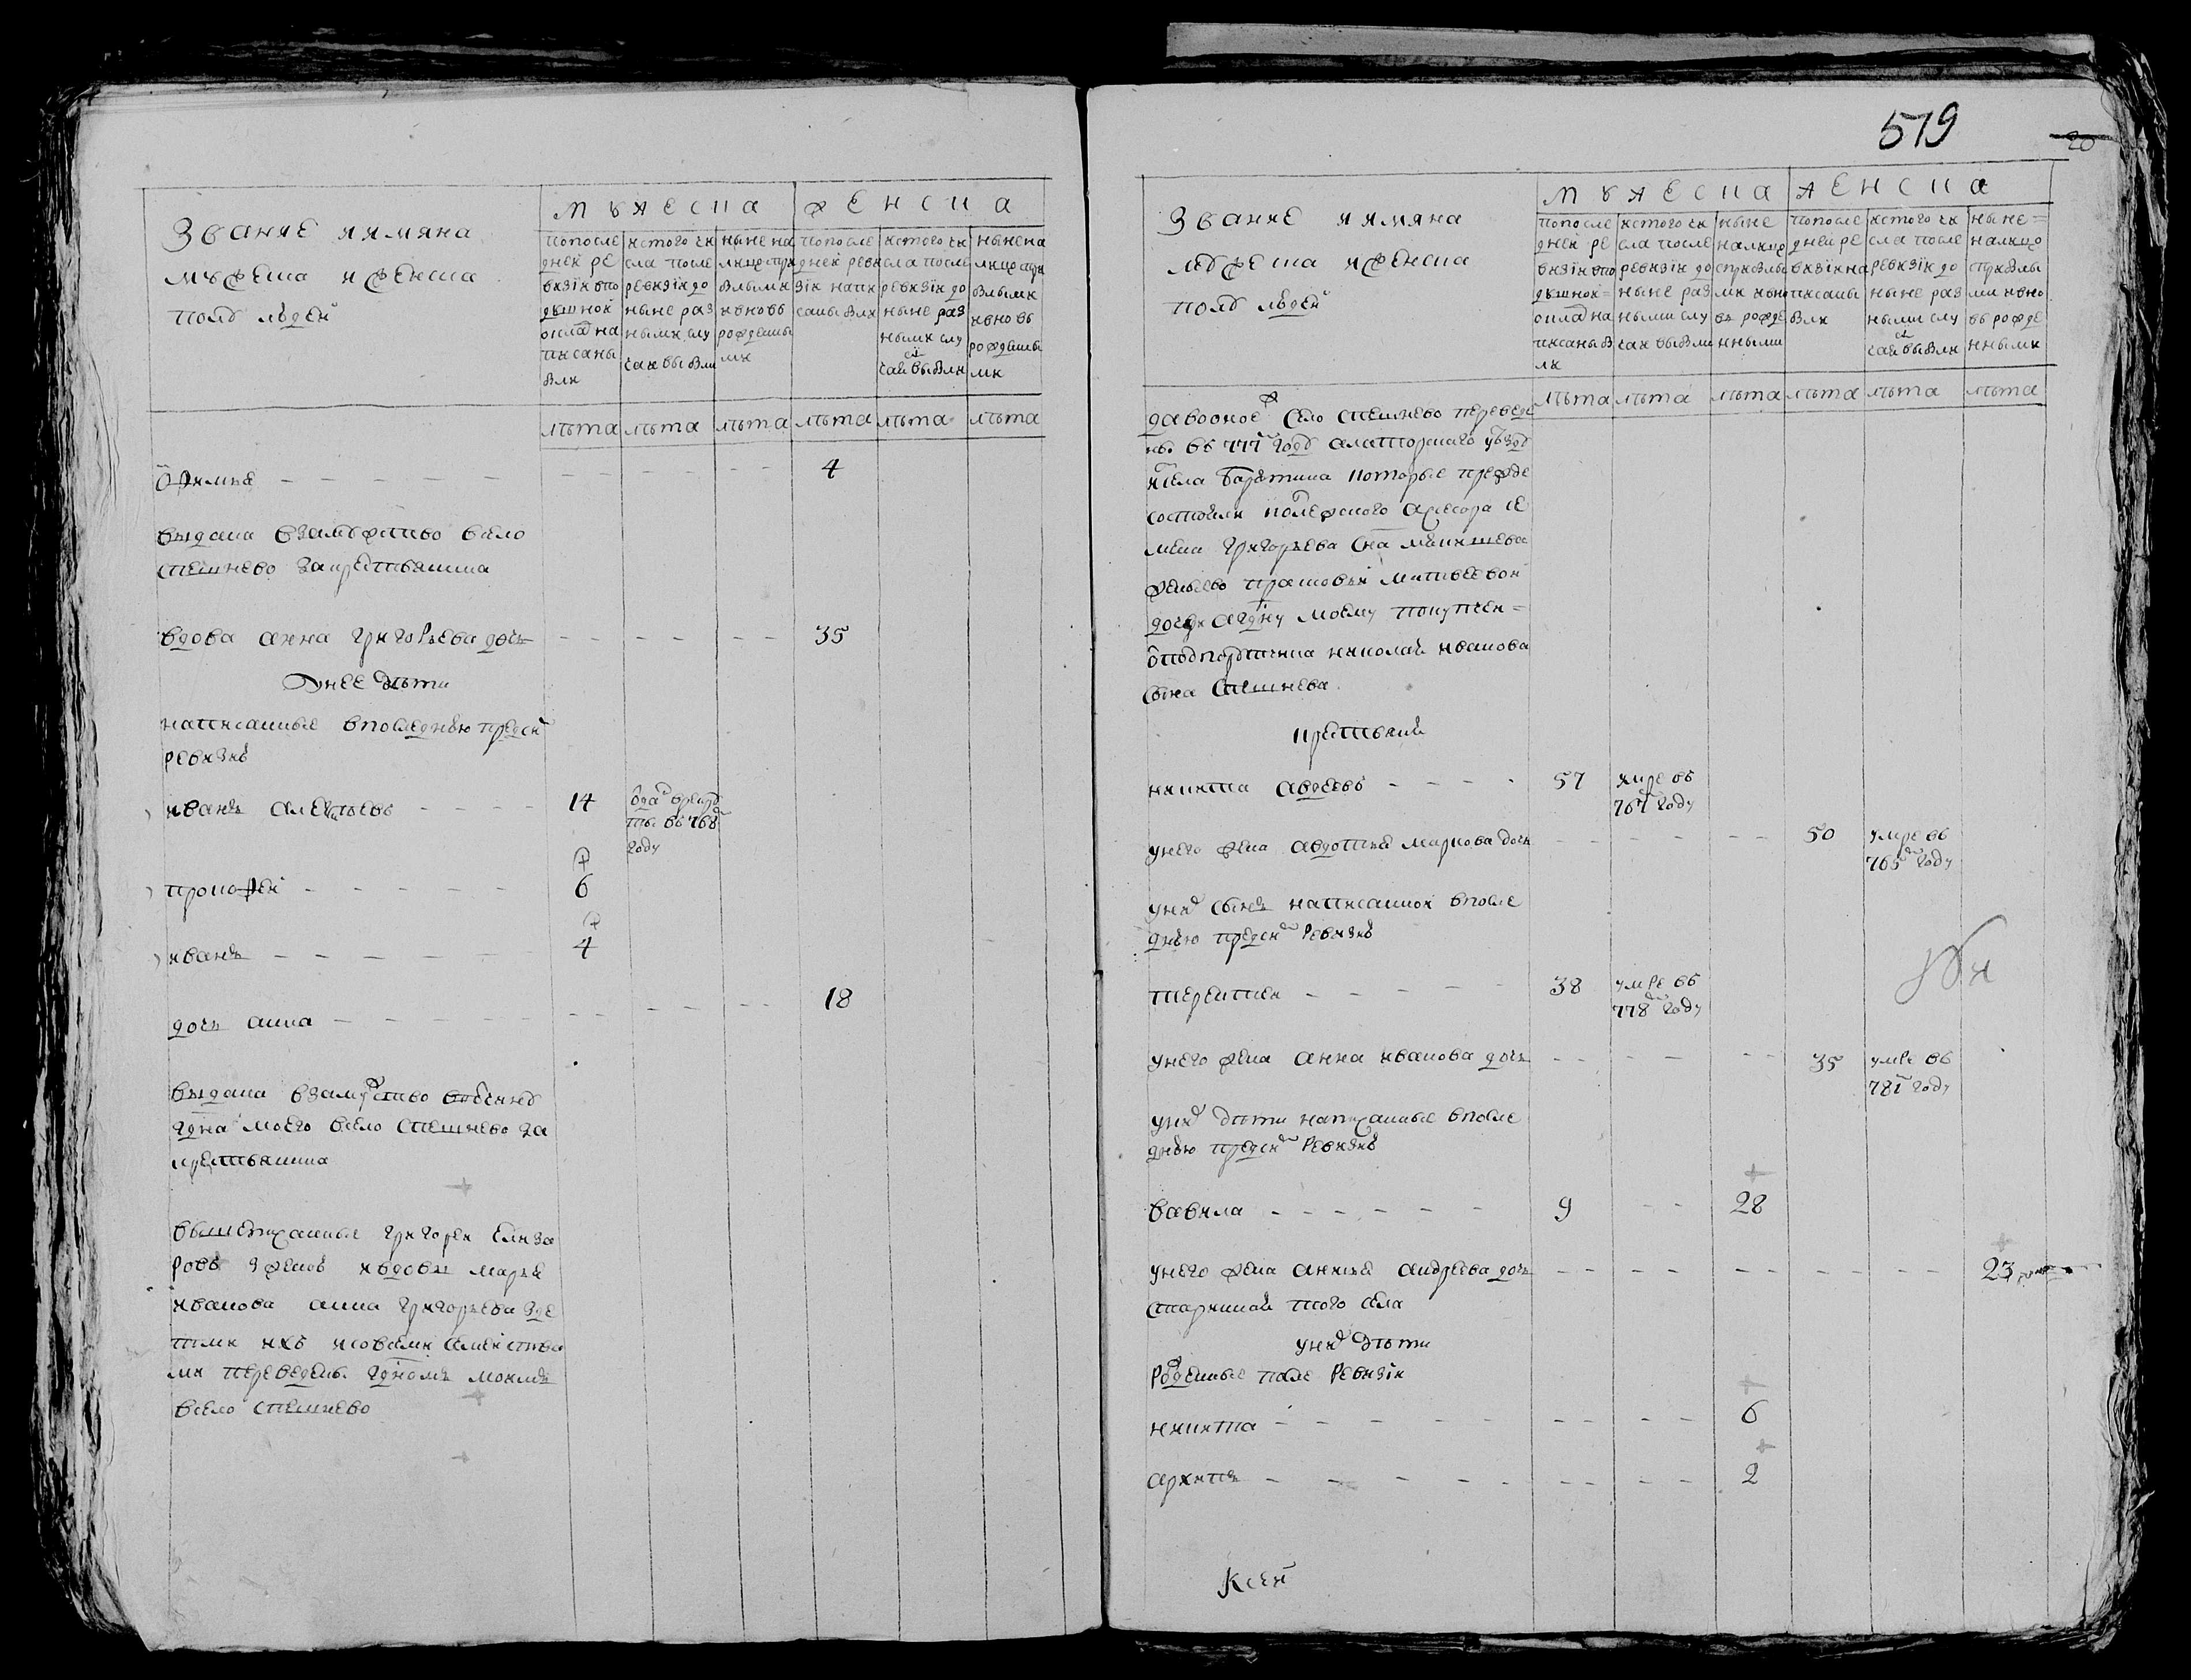 519
20
Звание и имяна
мужеска и женска
полу людей
мужеска
женска
попосле
дней ре
визіи спо
душной
оклад на
писаны
были
ис того чи
сла после
ревизіи до
ныне раз
ными слу
чаи выбыли
ныне на
лицо при
былыми
и вновь
рожденны
ми
попосле
дней реви
зіи напи
саны были
ис того чи
сла после
ревизіи до
ныне раз
ными слу
чаи выбыли
ныне на
лицо при
былыми
и вновь
рожденны
ми
лѣта лѣта лѣта лѣта лѣта лѣта
офимья 4
выдана взамужство в село
спешнево за крестьянина
вдова анна григорьева дочь 35
у нее дѣти
написанные в последнею пред сей
ревизию
иванъ алексѣевъ 14 отдан в рекру
ты въ 768
году
прокофей 6
иванъ 4
дочь анна 18
выдана взамужство
гдна моего в село спешнево за
крестьянина
вышеписанные григорей елиза
ровъ з женою и вдовы марья
иванова анна григорьева з де
тми ихъ и со всеми семейства
ми переведены гдномъ моимъ
в село спешнево
Звание и имяна
мужеска и женска
полу людей
мужеска женска
попосле
дней ре
визіи спо
душной
оклад на
писаны б
ли
ис того чи
сла после
ревизіи до
ныне раз
ными слу
чаи выбыли
ныне
налицо
с прибылы
ми и вно
вь рожде
нными
попосле
дней ре
визіи на
писаны
были
ис того чи
сла после
ревизіи до
ныне раз
ными слу
чаи выбыли
ныне
налицо
с прибылы
ми и вно
вь рожде
нными
лѣта лѣта лѣта лѣта лѣта лѣта
да в оное ж село спешнево переведе
ны въ 777 году алаторского уѣзду
из села барятина которые прежде
состояли колежского асесора се
мена григорьева сна
женою прасковьи матвеевой
дочери а гдну моему покупкою
от подпорутчика николая иванова
сына спешнева
крестьяня
никита авдеевъ 57 умре въ
767 году
у него жена авдотья маркова дочь 50 умре въ
765 году
у них сынъ написанной в после
днею пред сию ревизию
терентей 38 умре въ
778 году
у него жена анна иванова дочь 35 умре въ
781 году
у них дѣти написанные в после
днею пред сию ревизию
вавила 9 28
у него жена анисья андреева дочь 23
старинная того села
у них дѣти
рожденные после ревизіи
никита 6
архипъ 2